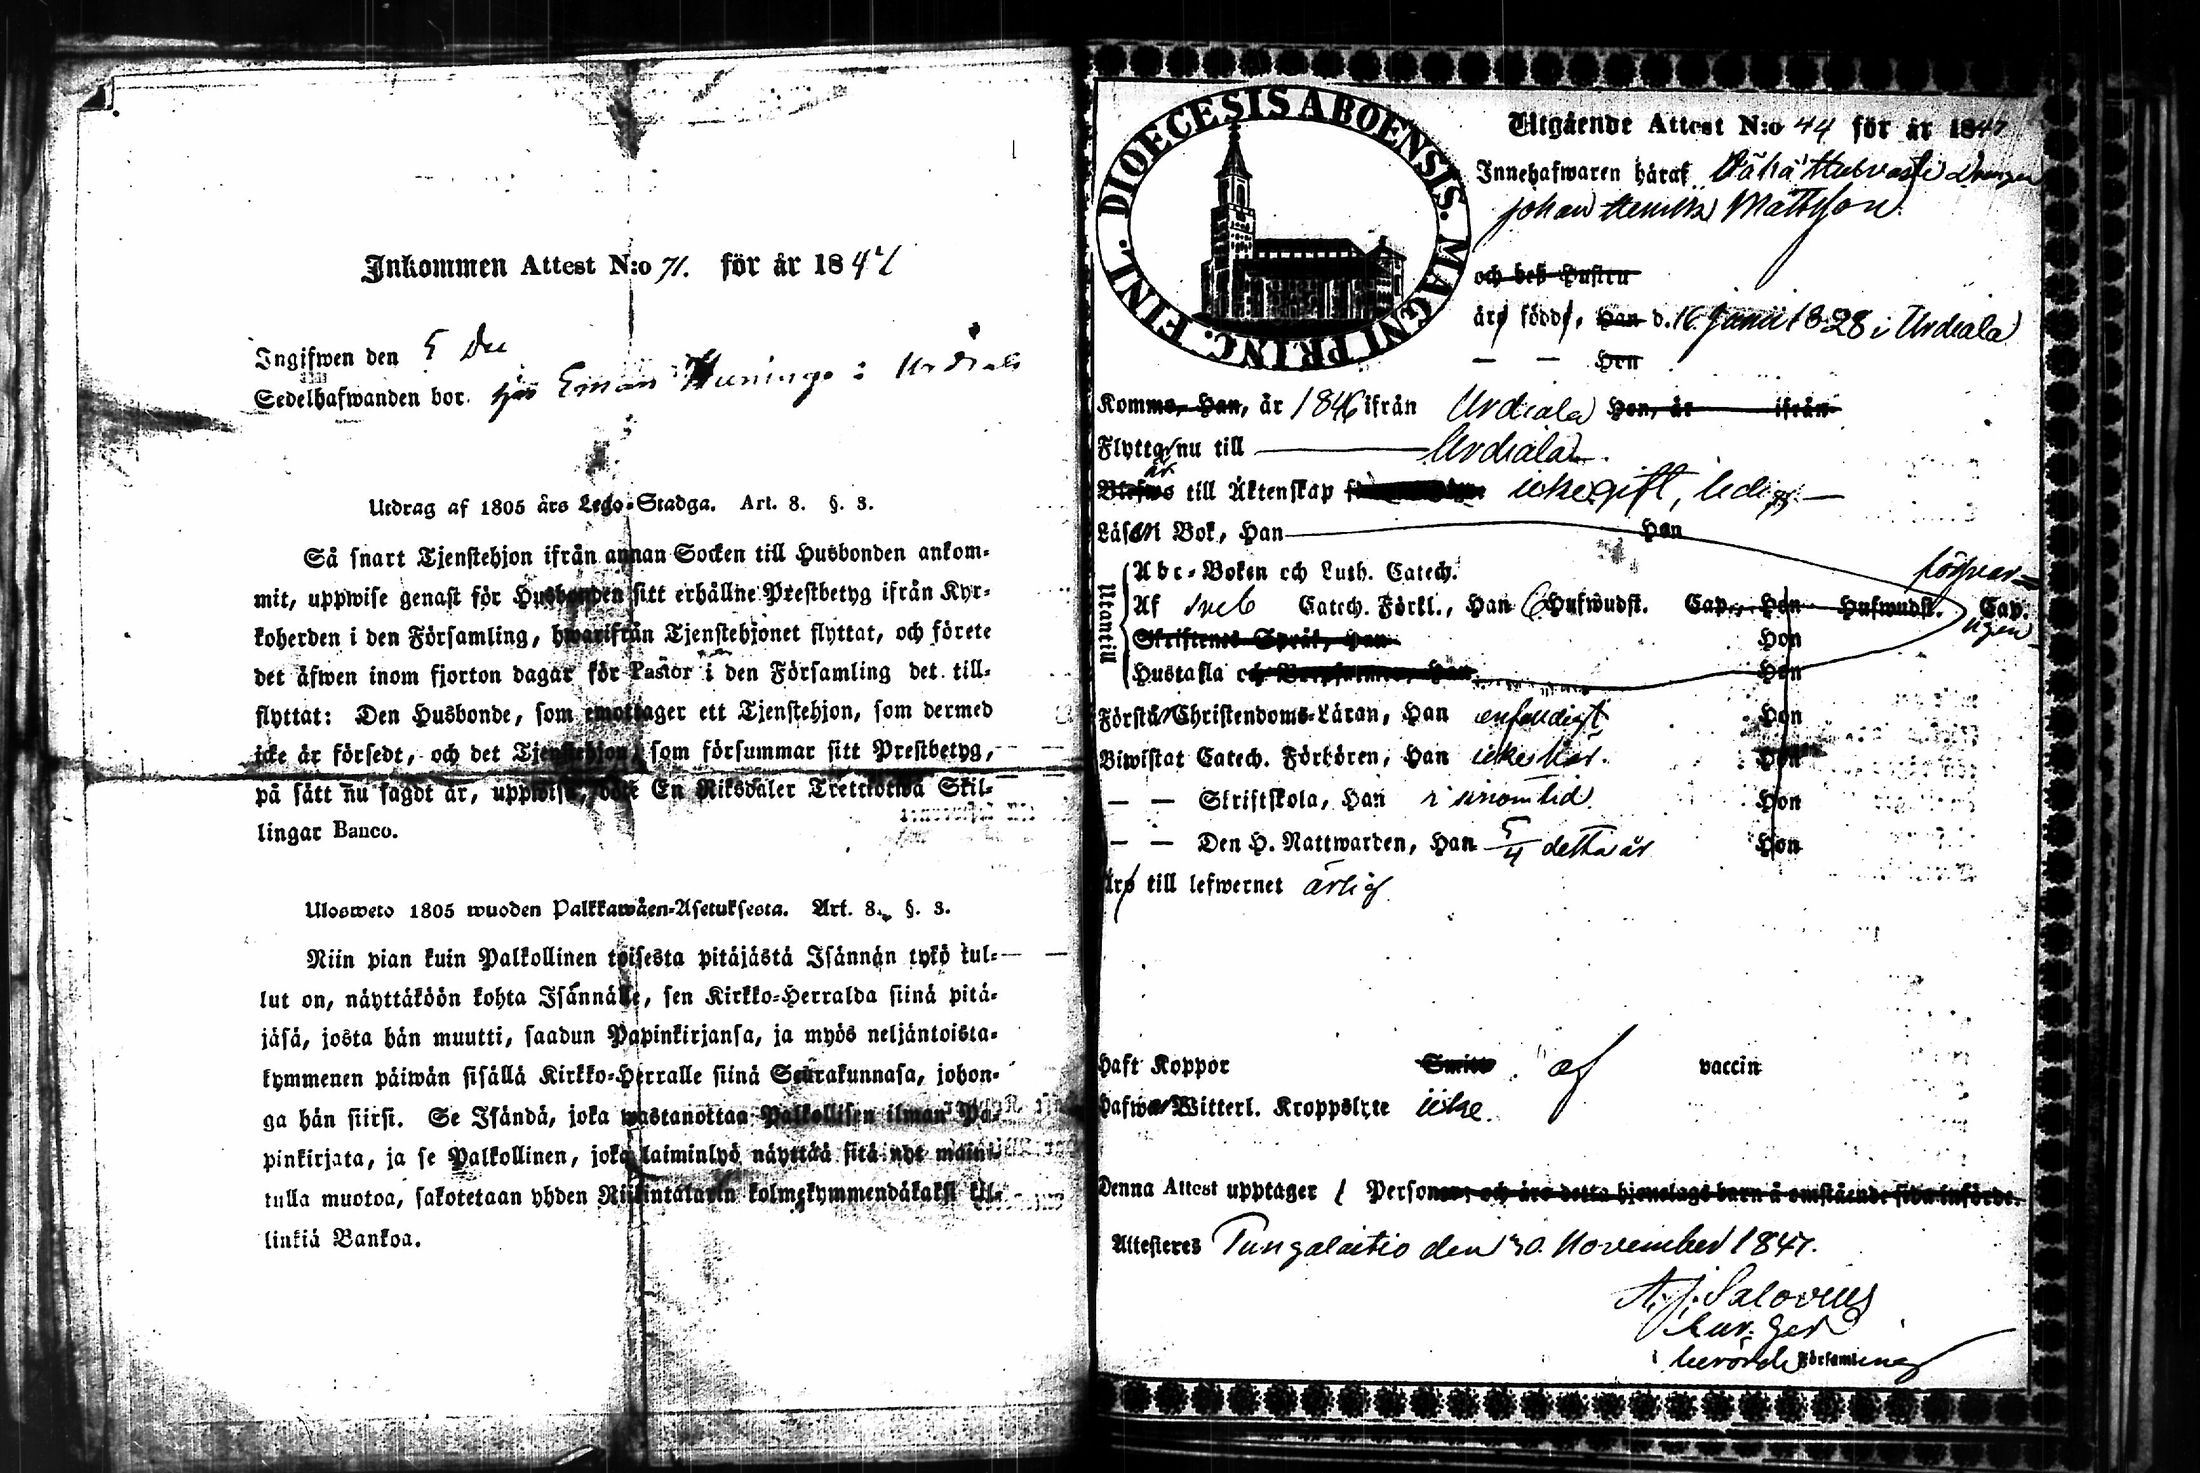 Inkommen Attest N:o 71. för år 1847
Ingifwen den 5 Dec
Sedelhafwanden bor hos Eman Huninga i Urdiala
Utdrag af 1805 års Lego-Stadga. Art. 8. §. 3.
Så snart Tjenstehjon ifrån annan Socken till Husbonden ankom-
mit, uppwise genast för Husbonden sitt erhållne Prestbetyg ifrån Kyr-
koherden i den Församling, hwarifrån Tjenstehjonet flyttat, och förete
det äfwen inom fjorton dagar för Pastor i den Församling det till-
flyttat: Den Husbonde, som emottager ett Tjenstehjon, som dermed
icke är försedt, och det Tjenstehjon, som försummar sitt Prestbetyg,
på sätt nu sagdt är, uppwisa, böte En Riksdaler Trettiotwå Skil-
lingar Banco.
Ulosweto 1805 wuoden Palkkawäen-Asetuksesta. Art. 8. §. 3.
Niin pian kuin Palkollinen toisesta pitäjästä Isännän tykö tul-
lut on, näyttäköön kohta Isännälle, sen Kirkko-Herralda siinä pitä-
jäsä, josta hän muutti, saadun Papinkirjansa, ja myös neljäntoista-
kymmenen päiwän sisällä Kirkko-Herralle siinä Seurakunnasa, johon-
ga hän siirsi. Se Isändä, joka wastanottaa Palkollisen ilman Pa-
pinkirjata, ja se Palkollinen, joka laiminlyö näyttää sitä nyt maini-
tulla muotoa, sakotetaan yhden Riikintalarin kolmekymmendäkaksi kil-
linkiä Bankoa.
DIOECESIS ABOENSIS. MAGNI PRINC. FINL.
Utgående Attest N:o 44 för år 1847
Innehafwaren häraf Vähä Drengen
Johan Henrik Mattsson
och dess Hustru
äro födde, Han d. 16 Junii 1828 i Urdiala
— — Hon
Komme, Han, år 1846 ifrån Urdiala Hon, år ifrån
Flyttar nu till Urdiala
är
Blefwo till Äktenskap icke gift, ledig
Läsa i Bok, Han Hon
Utantill
Abc-Boken och Luth. Catech. försvar-
Af Sveb Catech. Förkl., Han 6 Hufwudst. Cap., Hon Hufwudst. Cap.
ligen
Skriftenes Språk, Han Hon
Hustafla och Botpsalmer, Han Hon
Förstår Christendoms-Läran, Han enfaldigt Hon
Biwistat Catech. Förhören, Han icke här. Hon
— — Skriftskola, Han i sinom tid Hon
— — Den H. Nattwarden, Han 5/4 detta år Hon
Äro till lefwernet ärlig
Haft Koppor af vaccin
Hafwer Witterl. Kroppslyte icke.
Denna Attest upptager 1 Personer, och äro detta hjonelags barn å omstående sida införde.
Attesteres Pungalaitio den 30. November 1847.
A. J. Salovius
i berörde Församling